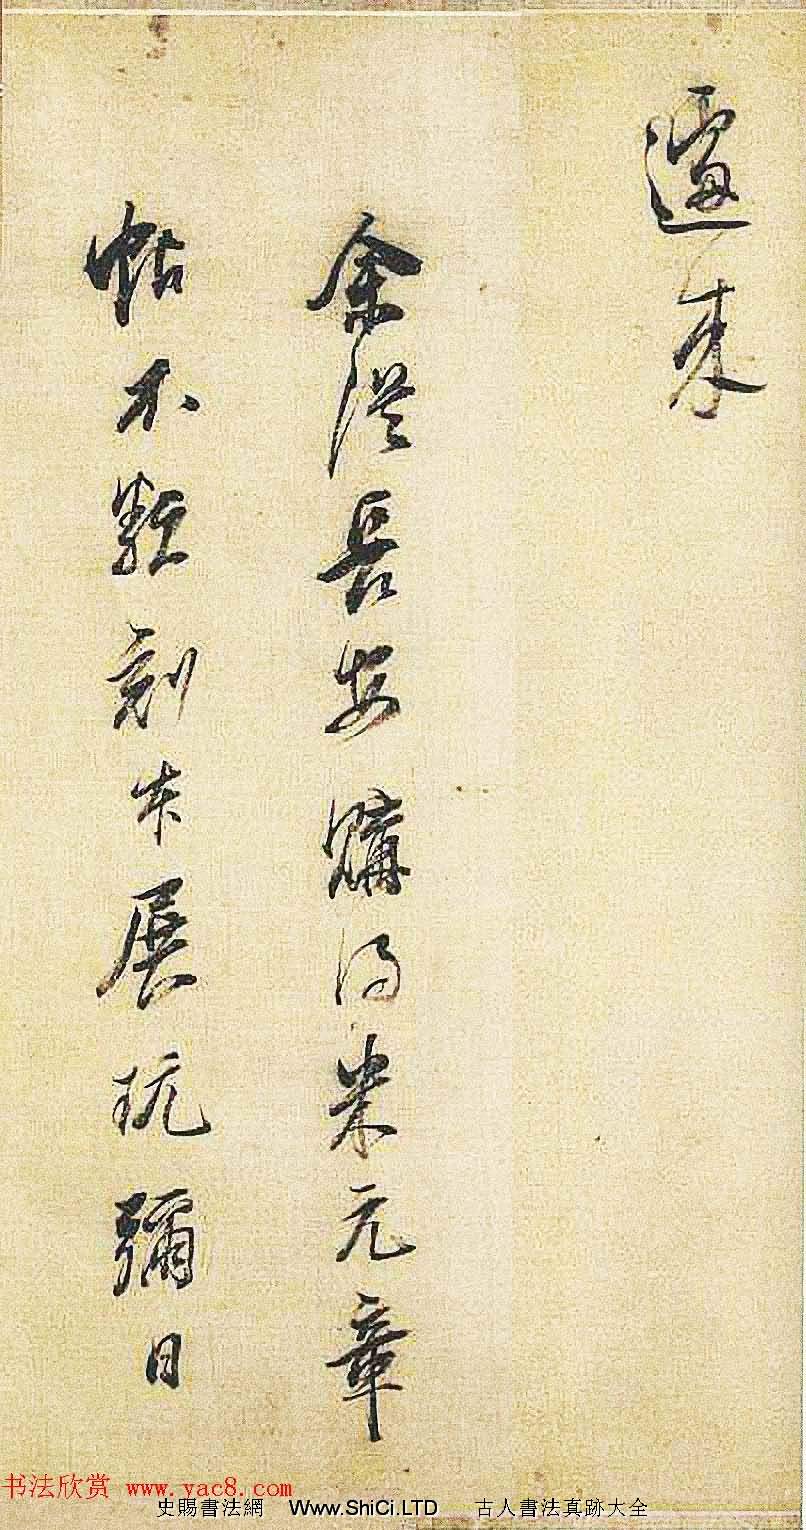 来
余從長安購得米元章
帖不類刻本展玩彌日
书法欣赏 www.yac8.com
史賜書法網 Www.ShiCi.LTD 古人書法真跡大全